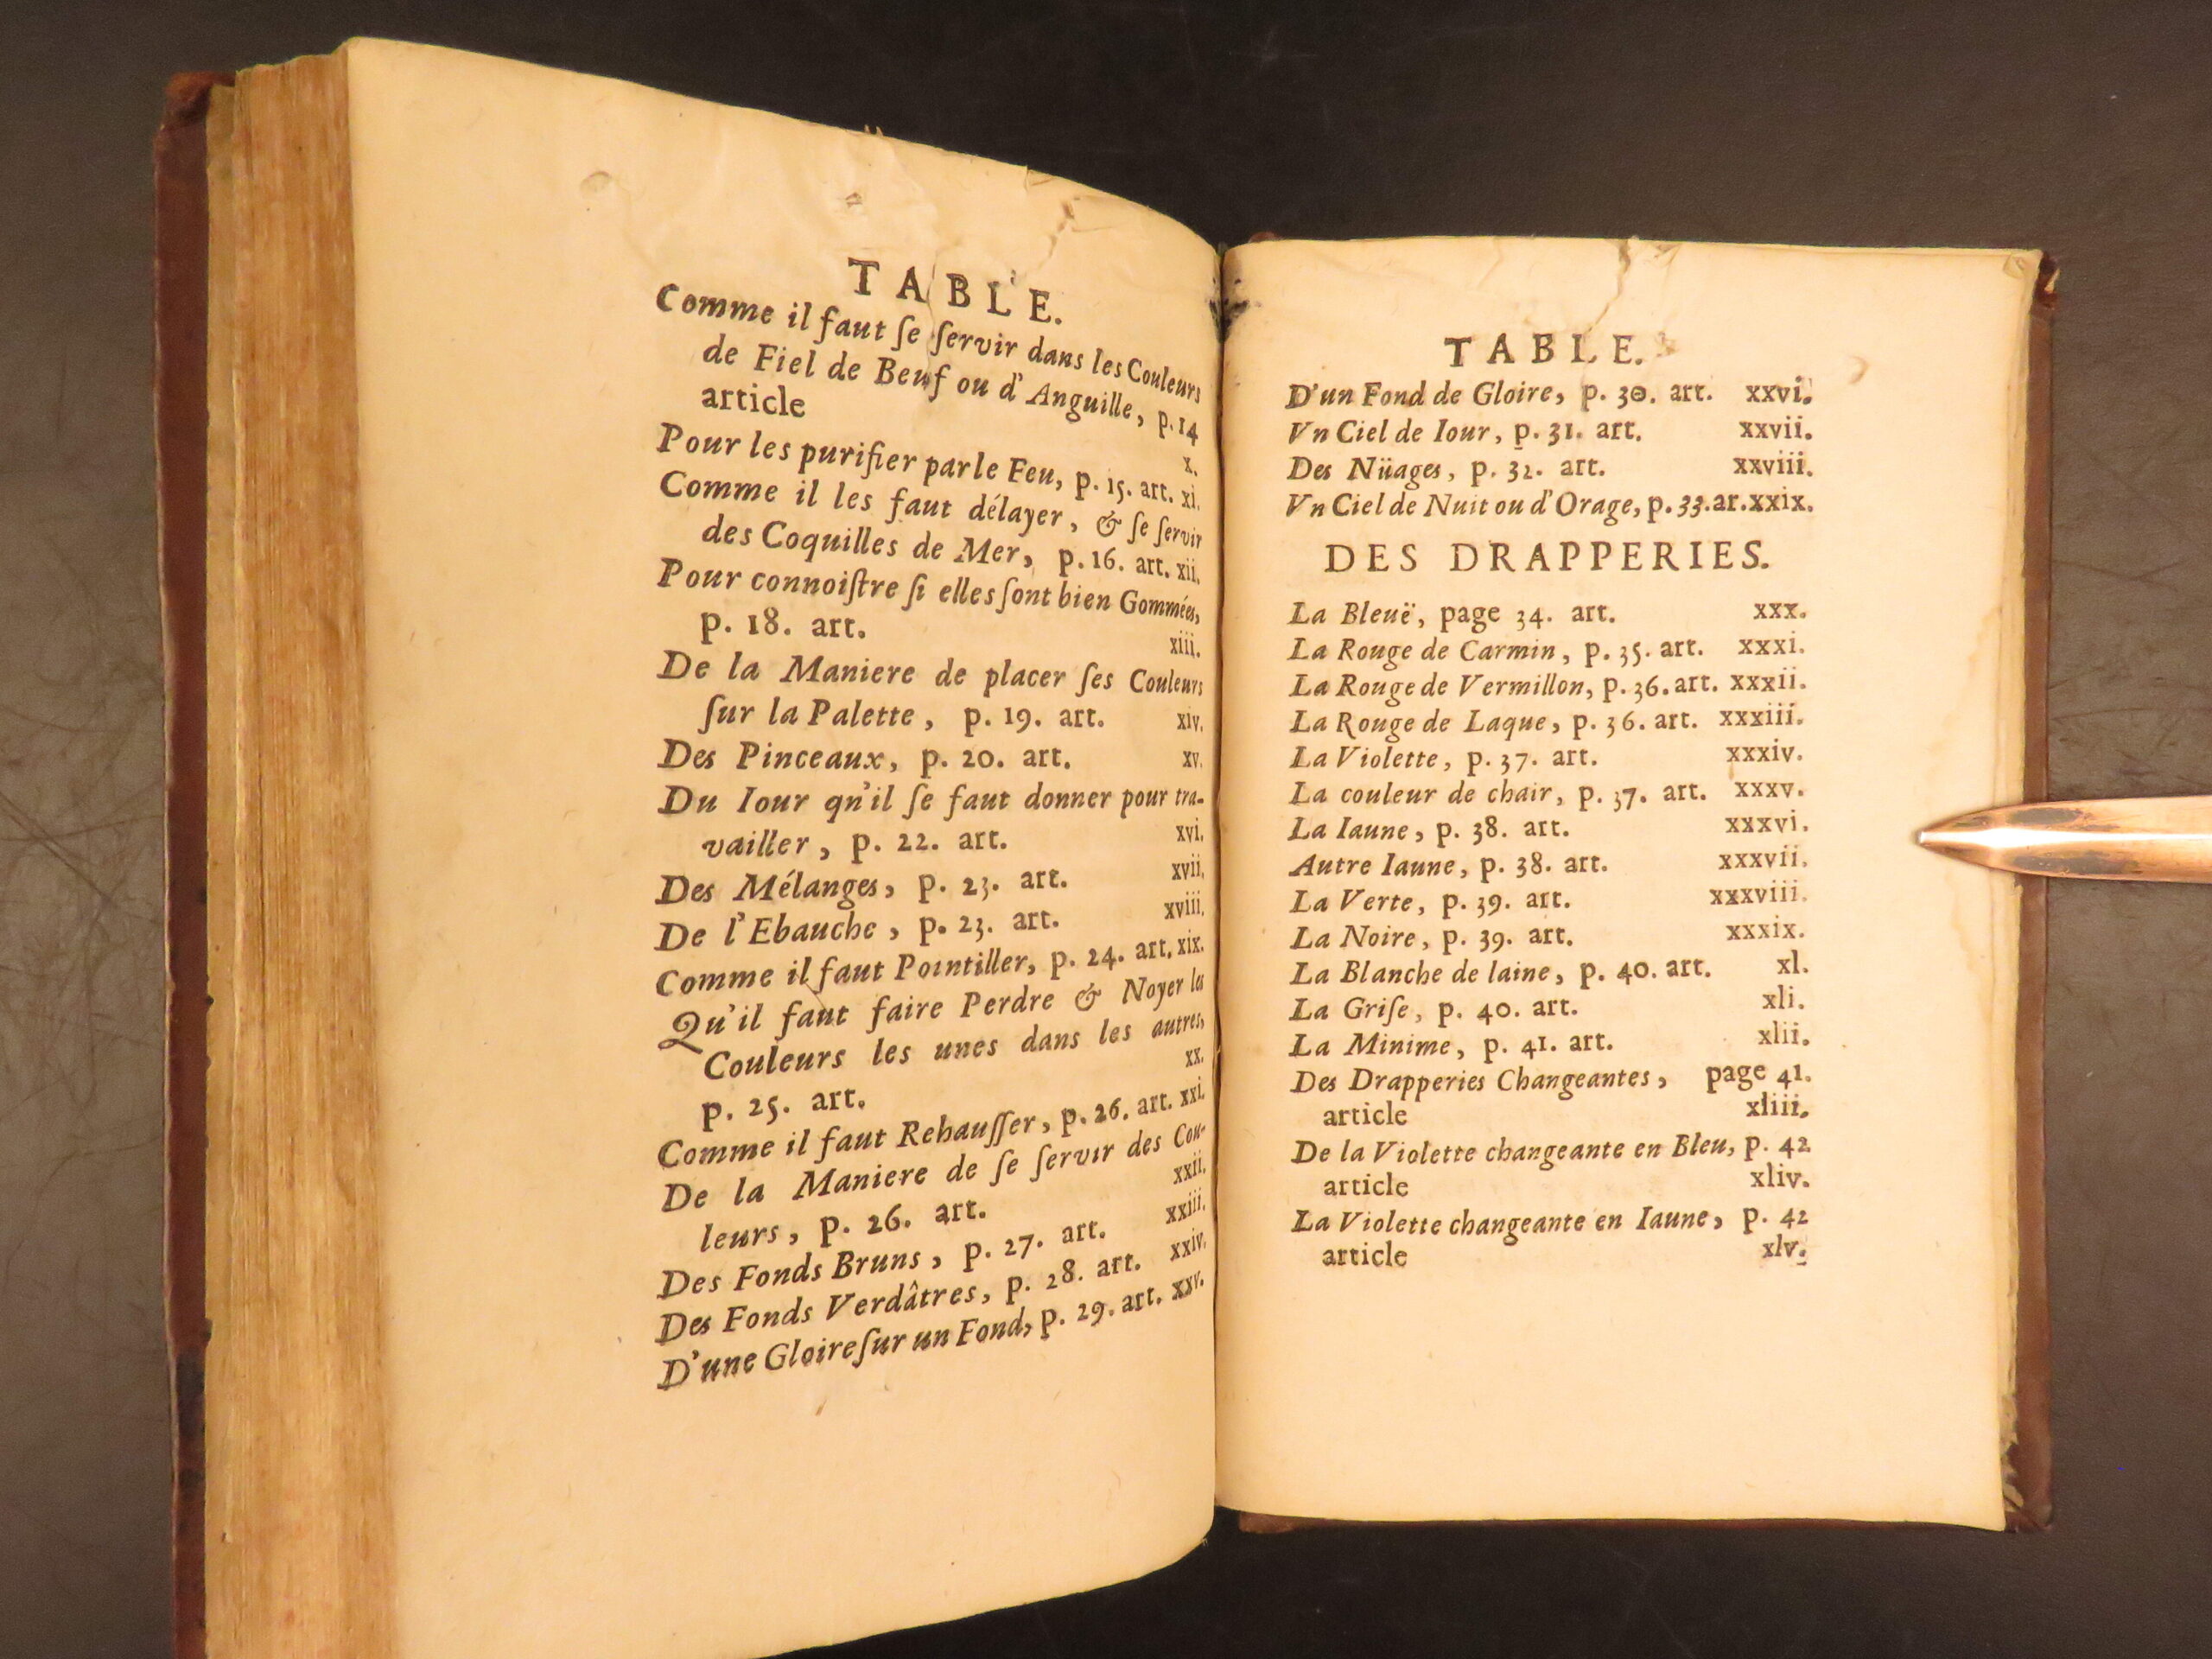 TABLE.
Comme il faut ſe ſervir dans les Couleurs
de Fiel de Beuf ou d'Anguille, p. 14
article x.
Pour les purifier par le Feu, p. 15. art. xi.
Comme il les faut délayer, & ſe ſervir
des Coquilles de Mer, p. 16. art. xii.
Pour connoiſtre ſi elles ſont bien Gommées,
p. 18. art. xiii.
De la Maniere de placer ſes Couleurs
ſur la Palette, p. 19. art. xiv.
Des Pinceaux, p. 20. art. xv.
Du Iour qu'il ſe faut donner pour tra-
vailler, p. 22. art. xvi.
Des Mélanges, p. 23. art. xvii.
De l'Ebauche, p. 23. art. xviii.
Comme il faut Pointiller, p. 24. art. xix.
Qu'il faut faire Perdre & Noyer les
Couleurs les unes dans les autres,
p. 25. art. xx.
Comme il faut Rehauſſer, p. 26. art. xxi.
De la Maniere de ſe ſervir des Cou-
leurs, p. 26. art. xxii.
Des Fonds Bruns, p. 27. art. xxiii.
Des Fonds Verdâtres, p. 28. art. xxiv.
D'une Gloire ſur un Fond, p. 29. art. xxv.
TABLE.
D'un Fond de Gloire, p. 30. art. xxvi.
Vn Ciel de Iour, p. 31. art. xxvii.
Des Nüages, p. 32. art. xxviii.
Vn Ciel de Nuit ou d'Orage, p. 33. ar. xxix.
DES DRAPPERIES.
La Bleuë, page 34. art. xxx.
La Rouge de Carmin, p. 35. art. xxxi.
La Rouge de Vermillon, p. 36. art. xxxii.
La Rouge de Laque, p. 36. art. xxxiii.
La Violette, p. 37. art. xxxiv.
La couleur de chair, p. 37. art. xxxv.
La Iaune, p. 38. art. xxxvi.
Autre Iaune, p. 38. art. xxxvii.
La Verte, p. 39. art. xxxviii.
La Noire, p. 39. art. xxxix.
La Blanche de laine, p. 40. art. xl.
La Griſe, p. 40. art. xli.
La Minime, p. 41. art. xlii.
Des Drapperies Changeantes, page 41.
article xliii.
De la Violette changeante en Bleu, p. 42
article xliv.
La Violette changeante en Iaune, p. 42
article xlv.